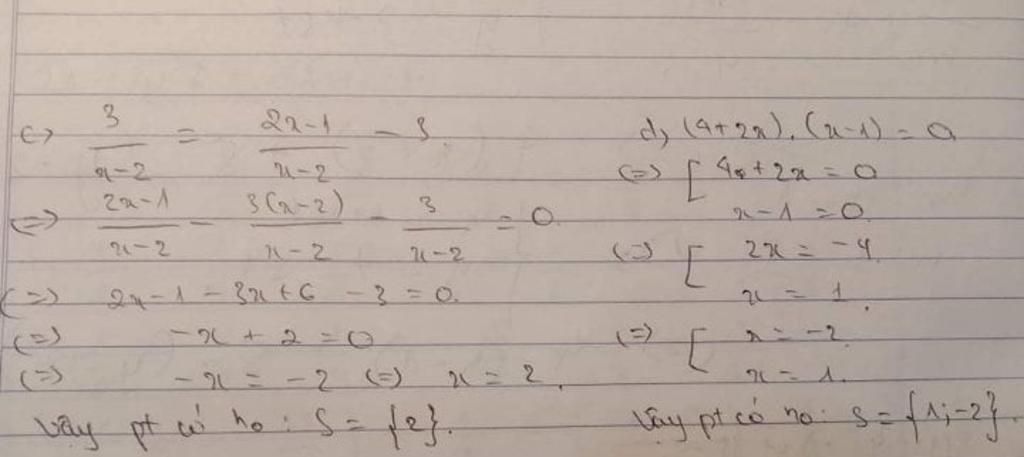 c) 3/(x-2) = (2x-1)/(x-2) - 3
<=> (2x-1)/(x-2) - 3(x-2)/(x-2) - 3/(x-2) = 0
<=> 2x-1-3x+6-3=0.
<=> -x+2=0
<=> -x=-2 <=> x=2.
Vậy pt có no: S={2}.
d, (4+2x).(x-1)=0
<=> [ 4+2x=0
x-1=0
<=> [ 2x=-4
x=1.
<=> [ x=-2
x=1.
Vậy pt có no: S={1;-2}.